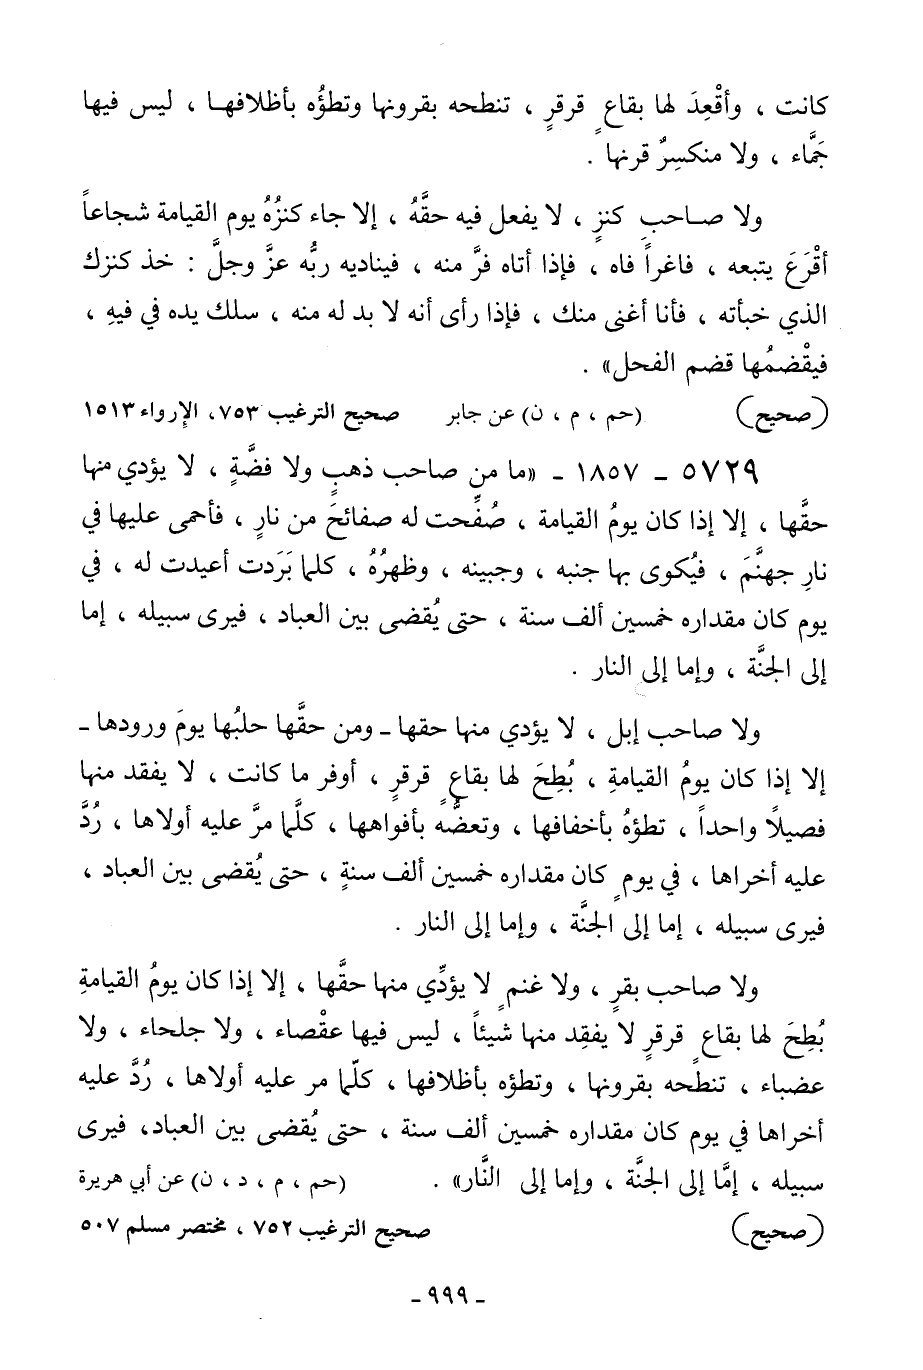 كانت ، وأقْعِدَ لها بقاعٍ قرقرٍ ، تنطحه بقرونها وتطؤُه بأظلافهـا ، ليس فيها
جَمَّاء ، ولا منكسِرٌ قرنها .
ولا صـاحبِ كنزٍ ، لا يفعل فيه حقَّهُ ، إلا جاء كنزُهُ يوم القيامة شجاعاً
أقْرَعَ يتبعه ، فاغراً فاه ، فإذا أتاه فرَّ منه ، فيناديه ربُّه عزَّ وجلَّ : خذ كنزك
الذي خبأته ، فأنا أغنى منك ، فإذا رأى أنه لا بد له منه ، سلك يده في فيهِ ،
فيقْضمُها قضم الفحل» .
(صحيح) (حم ، م ، ن) عن جابر صحيح الترغيب ٧٥٣، الإرواء ١٥١٣
٥٧٢٩ ـ ١٨٥٧ ـ «ما من صاحب ذهبٍ ولا فضَّةٍ ، لا يؤدي منها
حقَّها ، إلا إذا كان يومُ القيامة ، صُفِّحت له صفائحَ من نارٍ ، فأحمى عليها في
نارِ جهنَّمَ ، فيُكوى بها جنبه ، وجبينه ، وظهرُهُ ، كلما بَرَدت أعيدت له ، في
يوم كان مقداره خمسين ألف سنة ، حتى يُقضى بين العباد ، فيرى سبيله ، إما
إلى الجنَّة ، وإما إلى النار .
ولا صاحب إبل ، لا يؤدي منها حقها ـ ومن حقَّها حلبُها يومَ ورودها ـ
إلا إذا كان يومُ القيامةِ ، بُطِحَ لها بقاعٍ قرقرٍ ، أوفر ما كانت ، لا يفقد منها
فصيلًا واحداً ، تطؤهُ بأخفافها ، وتعضُّه بأفواهها ، كلَّما مرَّ عليه أولاها ، رُدَّ
عليه أخراها ، في يومٍ كان مقداره خمسين ألف سنةٍ ، حتى يُقضى بين العباد ،
فيرى سبيله ، إما إلى الجنَّة ، وإما إلى النار .
ولا صاحب بقرٍ ، ولا غنمٍ لا يؤدِّي منها حقَّها ، إلا إذا كان يومُ القيامةِ
بُطِحَ لها بقاعٍ قرقرٍ لا يفقِد منها شيئاً ، ليس فيها عقْصاء ، ولا جلحاء ، ولا
عضباء ، تنطحه بقرونها ، وتطؤه بأظلافها ، كلّما مر عليه أولاها ، رُدَّ عليه
أخراها في يوم كان مقداره خمسين ألف سنة ، حتى يُقضى بين العباد، فيرى
سبيله ، إمَّا إلى الجنَّة ، وإما إلى النَّار» . (حم ، م ، د ، ن) عن أبي هريرة
(صحيح) صحيح الترغيب ٧٥٢ ، مختصر مسلم ٥٠٧
ـ ٩٩٩ ـ